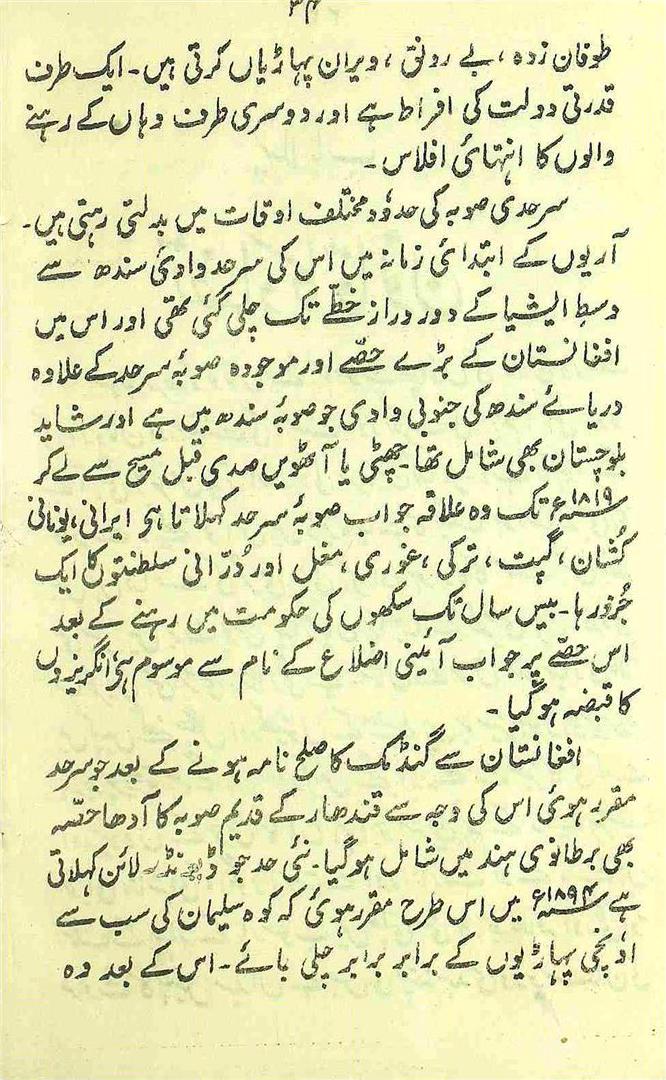 ۳۴
طوفان زدہ، بے رونق، ویران پہاڑیاں کرتی ہیں۔ ایک طرف
قدرتی دولت کی افراط ہے اور دوسری طرف وہاں کے رہنے
والوں کا انتہائی افلاس۔
سرحدی صوبہ کی حدود مختلف اوقات میں بدلتی رہتی ہیں۔
آریوں کے ابتدائی زمانہ میں اس کی سرحد وادئ سندھ سے
وسط ایشیا کے دور دراز خطّے تک چلی گئی تھی اور اس میں
افغانستان کے بڑے حصّے اور موجودہ صوبۂ سرحد کے علاوہ
دریائے سندھ کی جنوبی وادی جو صوبۂ سندھ میں ہے اور شاید
بلوچستان بھی شامل تھا۔ چھٹی یا آٹھویں صدی قبل مسیح سے لے کر
۱۸۱۹ء تک وہ علاقہ جو اب صوبۂ سرحد کہلاتا ہی ایرانی، یونانی
کُشان، گپت، ترکی، غوری، مغل اور دُرّانی سلطنتوں کا ایک
جُزو رہا۔ بیس سال تک سکھوں کی حکومت میں رہنے کے بعد
اس حصّے پر جو اب آئینی اضلاع کے نام سے موسوم ہی انگریزوں
کا قبضہ ہو گیا۔
افغانستان سے گنڈمک کا صلح نامہ ہونے کے بعد جو سرحد
مقرر ہوئی اس کی وجہ سے قندھار کے قدیم صوبہ کا آدھا حصّہ
بھی برطانوی ہند میں شامل ہو گیا۔ نئی حد جو لائن کہلاتی
ہے ۱۸۹۴ء میں اس طرح مقرر ہوئی کہ کوہ سلیمان کی سب سے
اونچی پہاڑیوں کے برابر برابر چلی جائے۔ اس کے بعد وہ